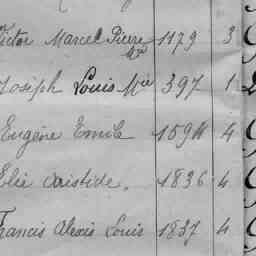 Victor Marcel Pierre Mie 1179 3
Joseph Louis Mie 397 1
Eugène Emile 1594 4
Elie Aristide. 1836 4
Francis Alexis Louis 1837 4